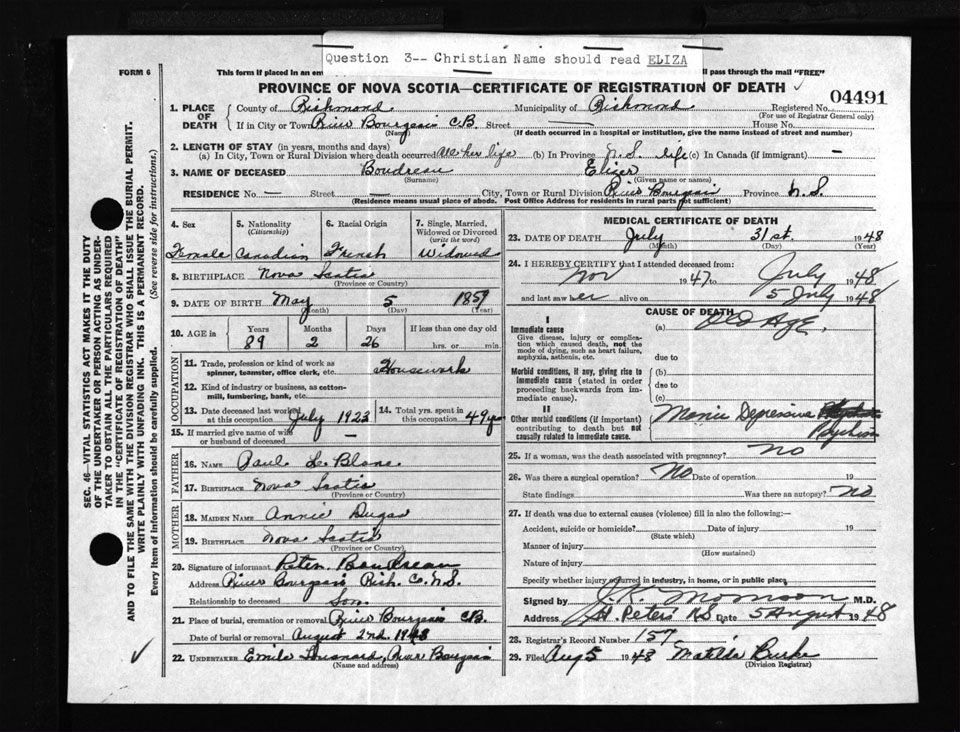 Question 3-- Christian Name should read ELIZA
FORM 6
This form if placed in an en
ll pass through the mail "FREE"
PROVINCE OF NOVA SCOTIA—CERTIFICATE OF REGISTRATION OF DEATH ✓
04491
1. PLACE OF DEATH
County of Richmond Municipality of Richmond Registered No.
(For use of Registrar General only)
If in City or Town River Bourgeois C.B. Street — House No.
(Name) (If death occurred in a hospital or institution, give the name instead of street and number)
2. LENGTH OF STAY (in years, months and days)
(a) In City, Town or Rural Division where death occurred All her life (b) In Province N.S. life (c) In Canada (if immigrant) —
3. NAME OF DECEASED Boudreau Elizer
(Surname) (Given name or names)
RESIDENCE No. — Street — City, Town or Rural Division River Bourgeois Province N.S.
(Residence means usual place of abode. Post Office Address for residents in rural parts not sufficient)
4. Sex 5. Nationality (Citizenship) 6. Racial Origin 7. Single, Married, Widowed or Divorced (write the word)
Female Canadian French Widowed
8. BIRTHPLACE Nova Scotia
(Province or Country)
9. DATE OF BIRTH May 5 1859
(Month) (Day) (Year)
10. AGE in Years Months Days If less than one day old
89 2 26 hrs. or min.
OCCUPATION
11. Trade, profession or kind of work as spinner, teamster, office clerk, etc. Housework
12. Kind of industry or business, as cotton-mill, lumbering, bank, etc.
13. Date deceased last worked at this occupation July 1923 14. Total yrs. spent in this occupation 49 yrs
15. If married give name of wife or husband of deceased —
FATHER
16. NAME Paul Le Blanc
17. BIRTHPLACE Nova Scotia
(Province or Country)
MOTHER
18. MAIDEN NAME Annie Dugas
19. BIRTHPLACE Nova Scotia
(Province or Country)
20. Signature of informant Peter Boudreau
Address River Bourgeois Rich. Co. N.S.
Relationship to deceased Son
21. Place of burial, cremation or removal River Bourgeois C.B.
Date of burial or removal August 2nd 1948
22. UNDERTAKER Emile River Bourgeois
(Name and address)
MEDICAL CERTIFICATE OF DEATH
23. DATE OF DEATH July 31st. 1948
(Month) (Day) (Year)
24. I HEREBY CERTIFY that I attended deceased from:
Nov 1947 to July 1948
and last saw her alive on 5 July 1948
CAUSE OF DEATH
I
Immediate cause
Give disease, injury or complication which caused death, not the mode of dying, such as heart failure, asphyxia, asthenia, etc.
(a) Old Age.
due to
Morbid conditions, if any, giving rise to immediate cause (stated in order proceeding backwards from immediate cause).
(b)
due to
(c)
II
Other morbid conditions (if important) contributing to death but not causally related to immediate cause.
Manic Depressive
25. If a woman, was the death associated with pregnancy? No
26. Was there a surgical operation? No Date of operation 19
State findings Was there an autopsy? No
27. If death was due to external causes (violence) fill in also the following:—
Accident, suicide or homicide? Date of injury 19
(State which)
Manner of injury
(How sustained)
Nature of injury
Specify whether injury occurred in industry, in home, or in public place,
Signed by J.K. Morrison M.D.
Address St. Peters NS Date 5 August 1948
28. Registrar's Record Number 157
29. Filed Aug 5 1948 Matilda Burke
(Division Registrar)
SEC. 46—VITAL STATISTICS ACT MAKES IT THE DUTY
OF THE UNDERTAKER OR PERSON ACTING AS UNDER-
TAKER TO OBTAIN ALL THE PARTICULARS REQUIRED
IN THE "CERTIFICATE OF REGISTRATION OF DEATH"
AND TO FILE THE SAME WITH THE DIVISION REGISTRAR WHO SHALL ISSUE THE BURIAL PERMIT.
WRITE PLAINLY WITH UNFADING INK. THIS IS A PERMANENT RECORD.
Every item of information should be carefully supplied. (See reverse side for instructions.)